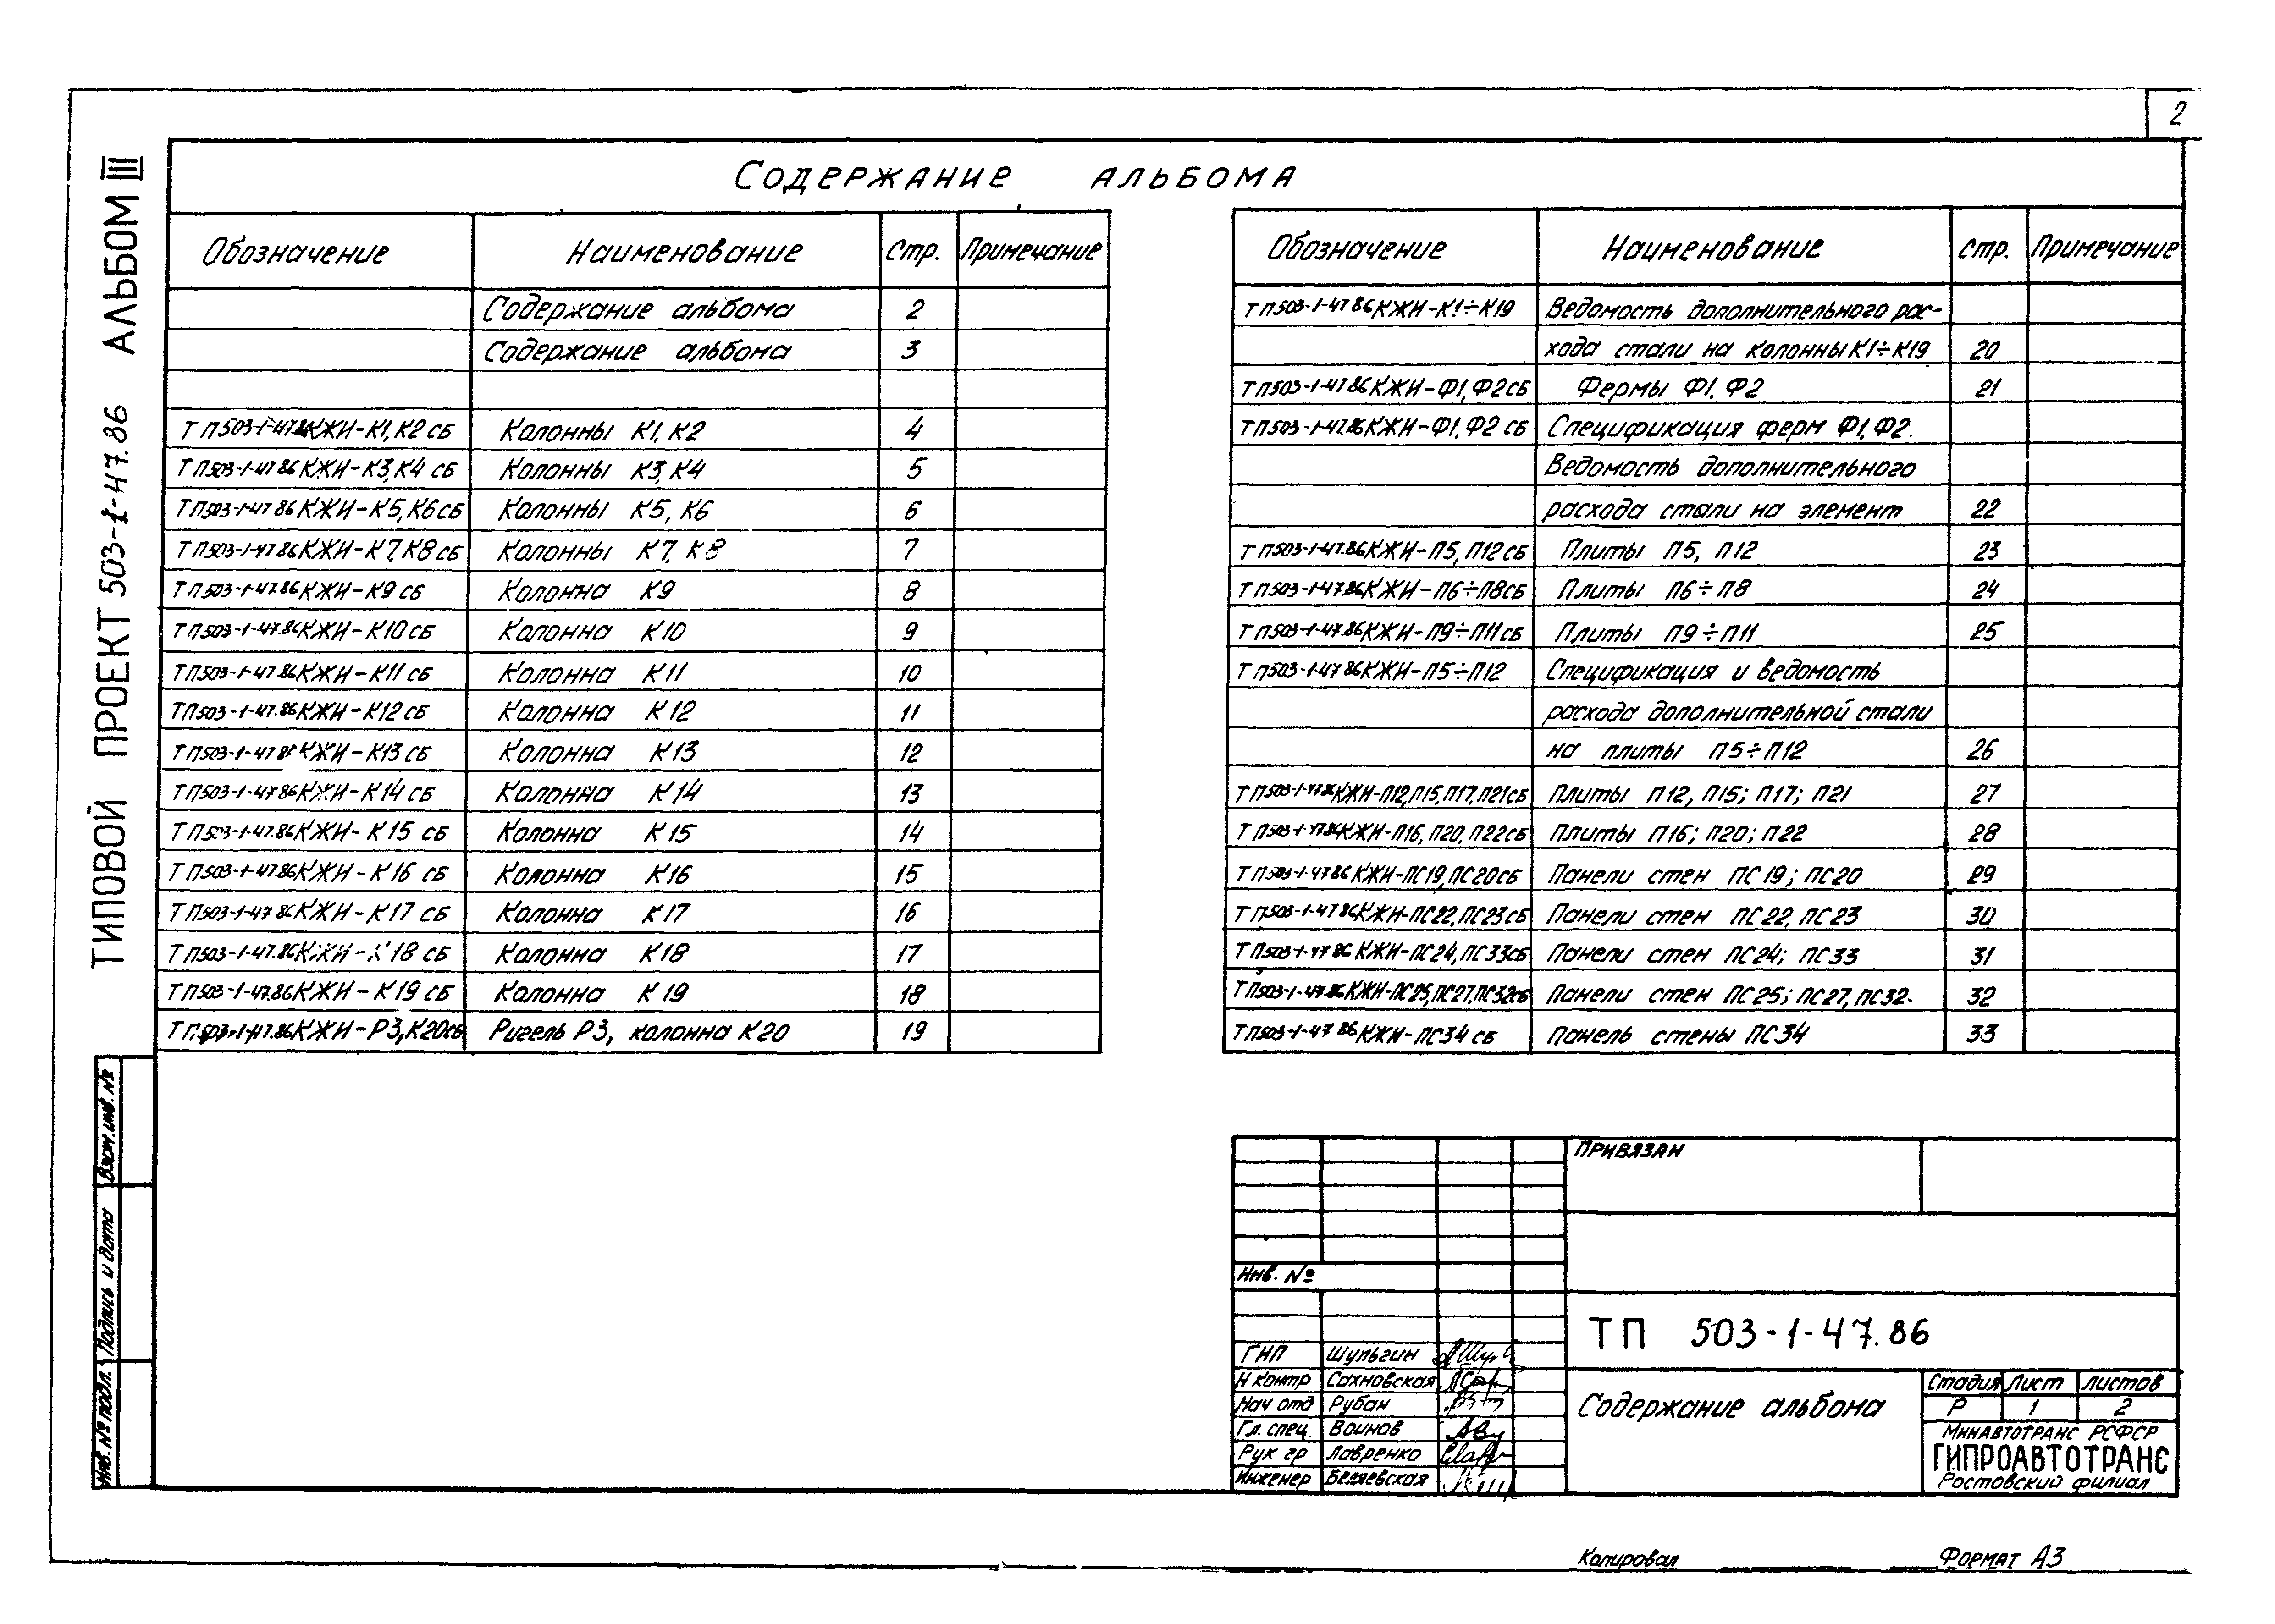 2
ТИПОВОЙ ПРОЕКТ 503-1-47.86 АЛЬБОМ III
СОДЕРЖАНИЕ АЛЬБОМА
Обозначение Наименование Стр. Примечание
Содержание альбома 2
Содержание альбома 3
ТП503-1-47.86КЖИ-К1,К2 сб Колонны К1, К2 4
ТП503-1-47.86КЖИ-К3,К4 сб Колонны К3, К4 5
ТП503-1-47.86КЖИ-К5,К6сб Колонны К5, К6 6
ТП503-1-47.86КЖИ-К7,К8сб Колонны К7, К8 7
ТП503-1-47.86КЖИ-К9 сб Колонна К9 8
ТП503-1-47.86КЖИ-К10сб Колонна К10 9
ТП503-1-47.86КЖИ-К11 сб Колонна К11 10
ТП503-1-47.86КЖИ-К12сб Колонна К12 11
ТП503-1-47.86КЖИ-К13 сб Колонна К13 12
ТП503-1-47.86КЖИ-К14 сб Колонна К14 13
ТП503-1-47.86КЖИ-К15 сб Колонна К15 14
ТП503-1-47.86КЖИ-К16 сб Колонна К16 15
ТП503-1-47.86КЖИ-К17 сб Колонна К17 16
ТП503-1-47.86КЖИ-К18 сб Колонна К18 17
ТП503-1-47.86КЖИ-К19 сб Колонна К19 18
ТП503-1-47.86КЖИ-Р3,К20сб Ригель Р3, колонна К20 19
Обозначение Наименование стр. Примечание
ТП503-1-47.86КЖИ-К1÷К19 Ведомость дополнительного рас-
хода стали на колонны К1÷К19 20
ТП503-1-47.86КЖИ-Ф1,Ф2сб Фермы Ф1, Ф2 21
ТП503-1-47.86КЖИ-Ф1,Ф2 сб Спецификация ферм Ф1, Ф2.
Ведомость дополнительного
расхода стали на элемент 22
ТП503-1-47.86КЖИ-П5,П12сб Плиты П5, П12 23
ТП503-1-47.86КЖИ-П6÷П8сб Плиты П6÷П8 24
ТП503-1-47.86КЖИ-П9÷П11сб Плиты П9÷П11 25
ТП503-1-47.86КЖИ-П5÷П12 Спецификация и ведомость
расхода дополнительной стали
на плиты П5÷П12 26
ТП503-1-47.86КЖИ-П12,П15,П17,П21сб Плиты П12, П15; П17; П21 27
ТП503-1-47.86КЖИ-П16,П20,П22сб Плиты П16; П20; П22 28
ТП503-1-47.86КЖИ-ПС19,ПС20сб Панели стен ПС19; ПС20 29
ТП503-1-47.86КЖИ-ПС22,ПС23сб Панели стен ПС22, ПС23 30
ТП503-1-47.86КЖИ-ПС24,ПС33сб Панели стен ПС24; ПС33 31
ТП503-1-47.86КЖИ-ПС25,ПС27,ПС32сб Панели стен ПС25; ПС27, ПС32. 32
ТП503-1-47.86КЖИ-ПС34 сб Панель стены ПС34 33
Взам.инв. №
Подпись и дата
Инв. № подл.
ПРИВЯЗАН
Инв. №
ТП 503-1-47.86
ГИП Шульгин
Н контр Сахновская
Нач отд Рубан
Гл. спец. Воинов
Рук гр Лавренко
Инженер Беляевская
Содержание альбома
Стадия Лист Листов
Р 1 2
МИНАВТОТРАНС РСФСР
ГИПРОАВТОТРАНС
Ростовский филиал
Копировал
ФОРМАТ А3